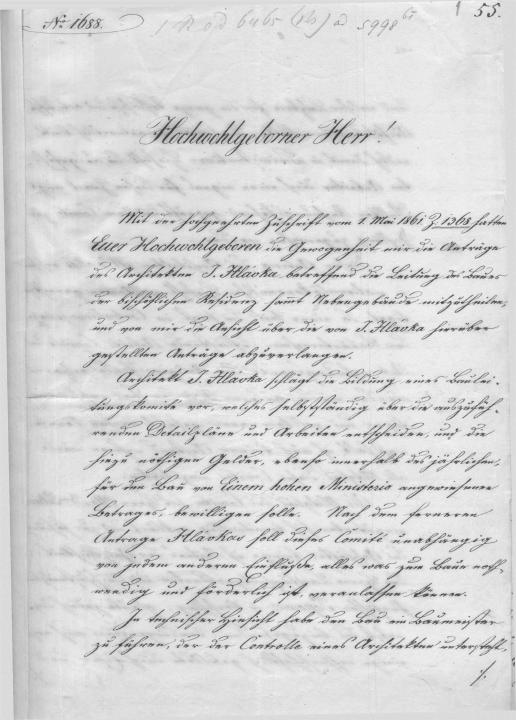 № 1688.
ad 5998
55.
Hochwohlgeborner Herr!
Mit der hochgeehrten Zuschrift vom 1. Mai 1861 Z. 1368 hatten
Euer Hochwohlgeboren die Gewogenheit mir die Anträge
des Architekten J. Hlávka betreffend die Leitung des Baues
der bischöflichen Residenz sammt Nebengebäude mitzutheilen,
und von mir die Ansicht über die von J. Hlávka hierüber
gestellten Anträge abzuverlangen.
Architekt J. Hlávka schlägt die Bildung eines Baulei-
tungskomite vor, welches selbstständig über die auszufüh-
renden Detailpläne und Arbeiten entscheiden, und die
hiezu nöthigen Gelder, ebenso innerhalb des jährlichen,
für den Bau von Einem hohen Ministerio angewiesenen
Betrages, bewilligen solle. Nach dem ferneren
Antrage Hlávkas soll dieses Comité unabhängig
von jedem anderen Einfluße, alles was zum Baue noth-
wendig und förderlich ist, veranlassen können.
In technischer Hinsicht habe den Bau ein Baumeister
zu führen, der der Controlle eines Architekten untersteht,
./.